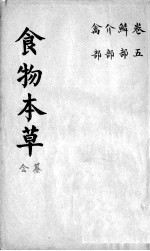 卷五
鱗部
介部
禽部
食物本草